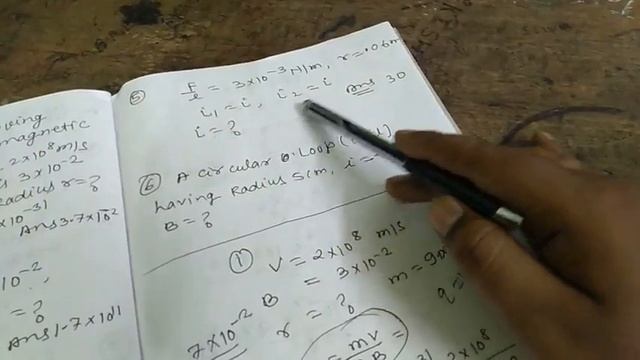 ving
magnetic
2×10⁸ m/s
3×10⁻²
radius r=?
×10⁻³¹
Ans 3.7×10²
10⁻²
=?
Ans 1.7×10¹¹
⑤ F/l = 3×10⁻³ N/m, r=.06m
i₁=i, i₂=i Ans 30
i=?
⑥ A circular Loop
having Radius 5cm, i=
B=?
① V=2×10⁸ m/s
B = 3×10⁻²
m=9
r=? q=
7×10⁻²
mv